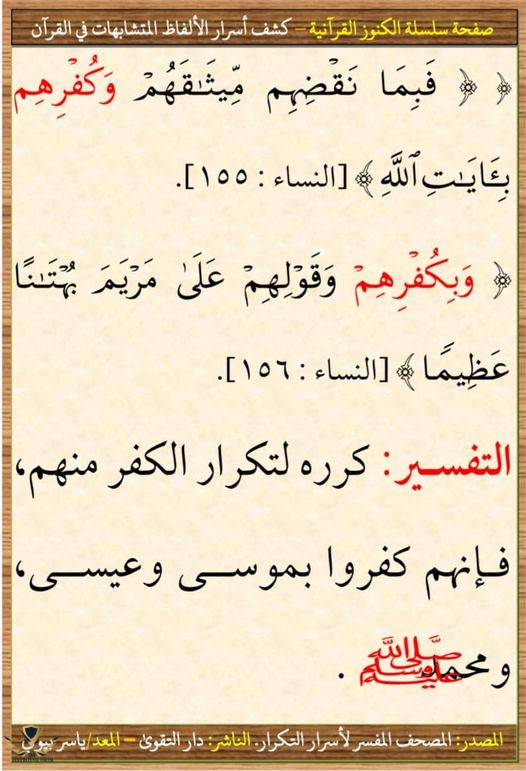 صفحة سلسلة الكنوز القرآنية – كشف أسرار الألفاظ المتشابهات في القرآن
﴿ ﴿ فَبِمَا نَقۡضِهِم مِّيثَٰقَهُمۡ وَكُفۡرِهِم
بِـَٔايَٰتِ ٱللَّهِ ﴾ [النساء : ١٥٥].
﴿ وَبِكُفۡرِهِمۡ وَقَوۡلِهِمۡ عَلَىٰ مَرۡيَمَ بُهۡتَٰنًا
عَظِيمًا ﴾ [النساء : ١٥٦].
التفسير: كرره لتكرار الكفر منهم،
فإنهم كفروا بموسى وعيسى،
ومحمد ﷺ .
المصدر: المصحف المفسر لأسرار التكرار. الناشر: دار التقوىٰ – المعد/ياسر بيومي